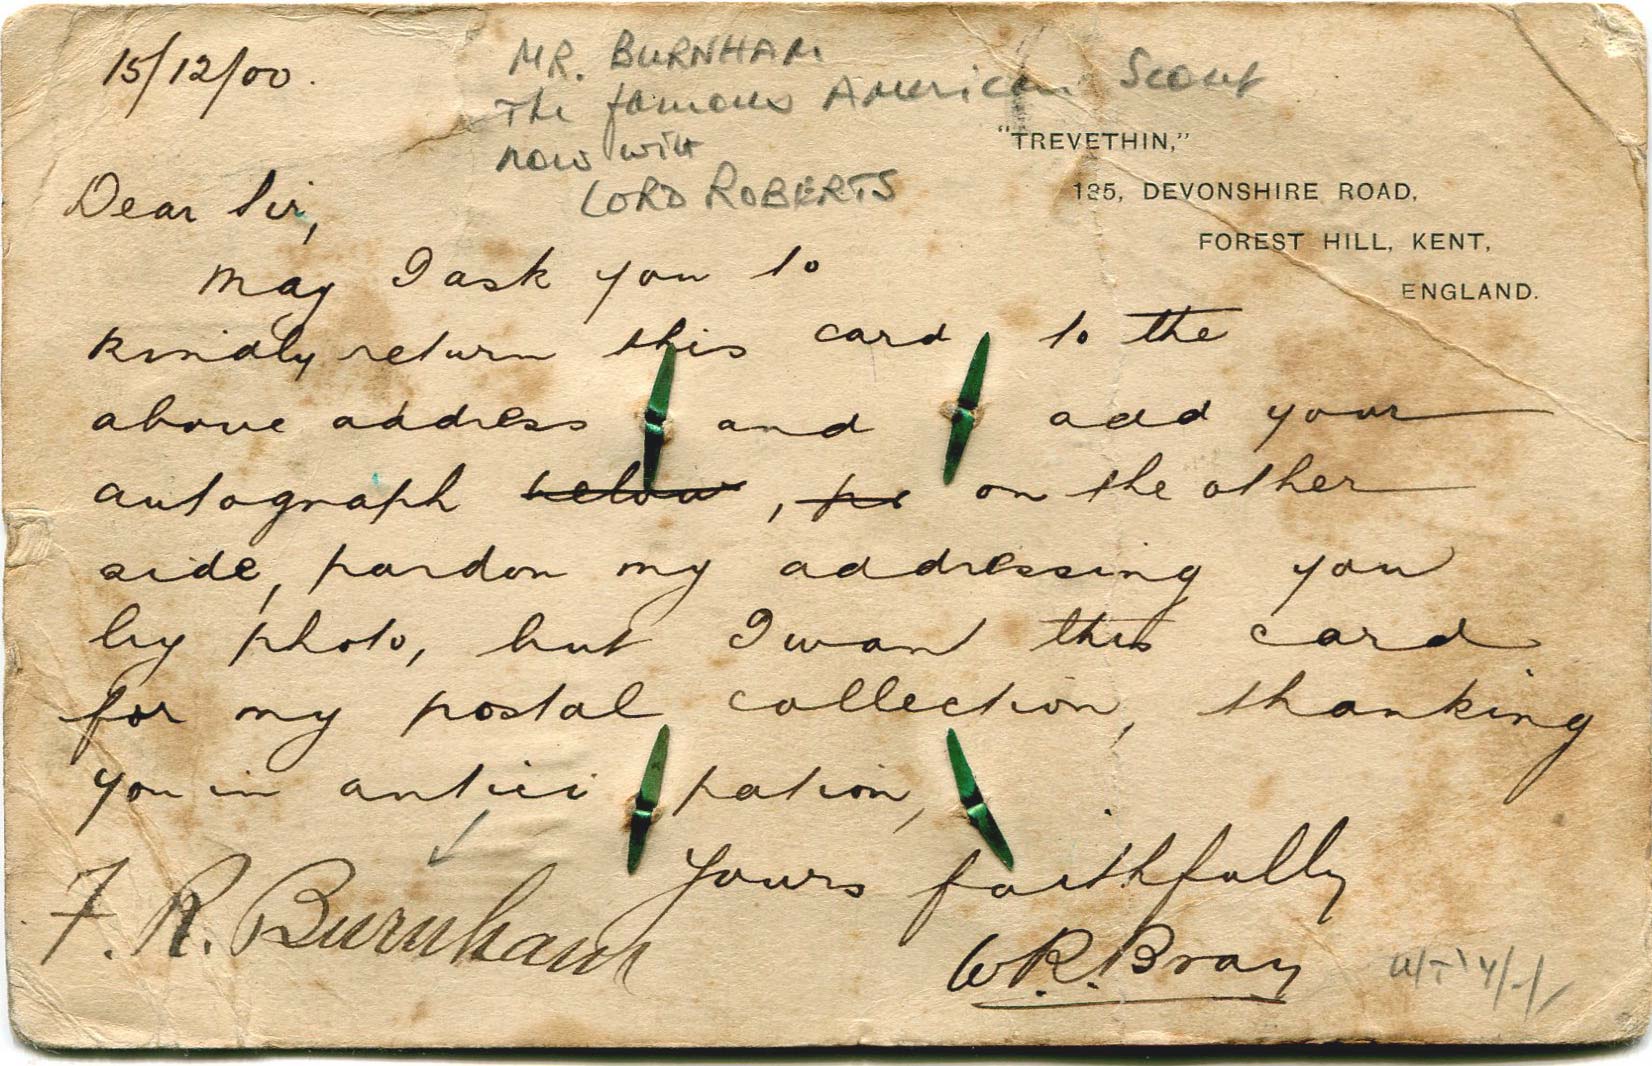 15/12/00.
MR. BURNHAM
The famous American Scout
now with
LORD ROBERTS
"TREVETHIN,"
135, DEVONSHIRE ROAD,
FOREST HILL, KENT,
ENGLAND.
Dear Sir,
May I ask you to
kindly return this card to the
above address and add your
autograph below, on the other
side, pardon my addressing you
by photo, but I want this card
for my postal collection, thanking
you in antici pation,
Yours faithfully
F. R. Burnham
W.R. Bray